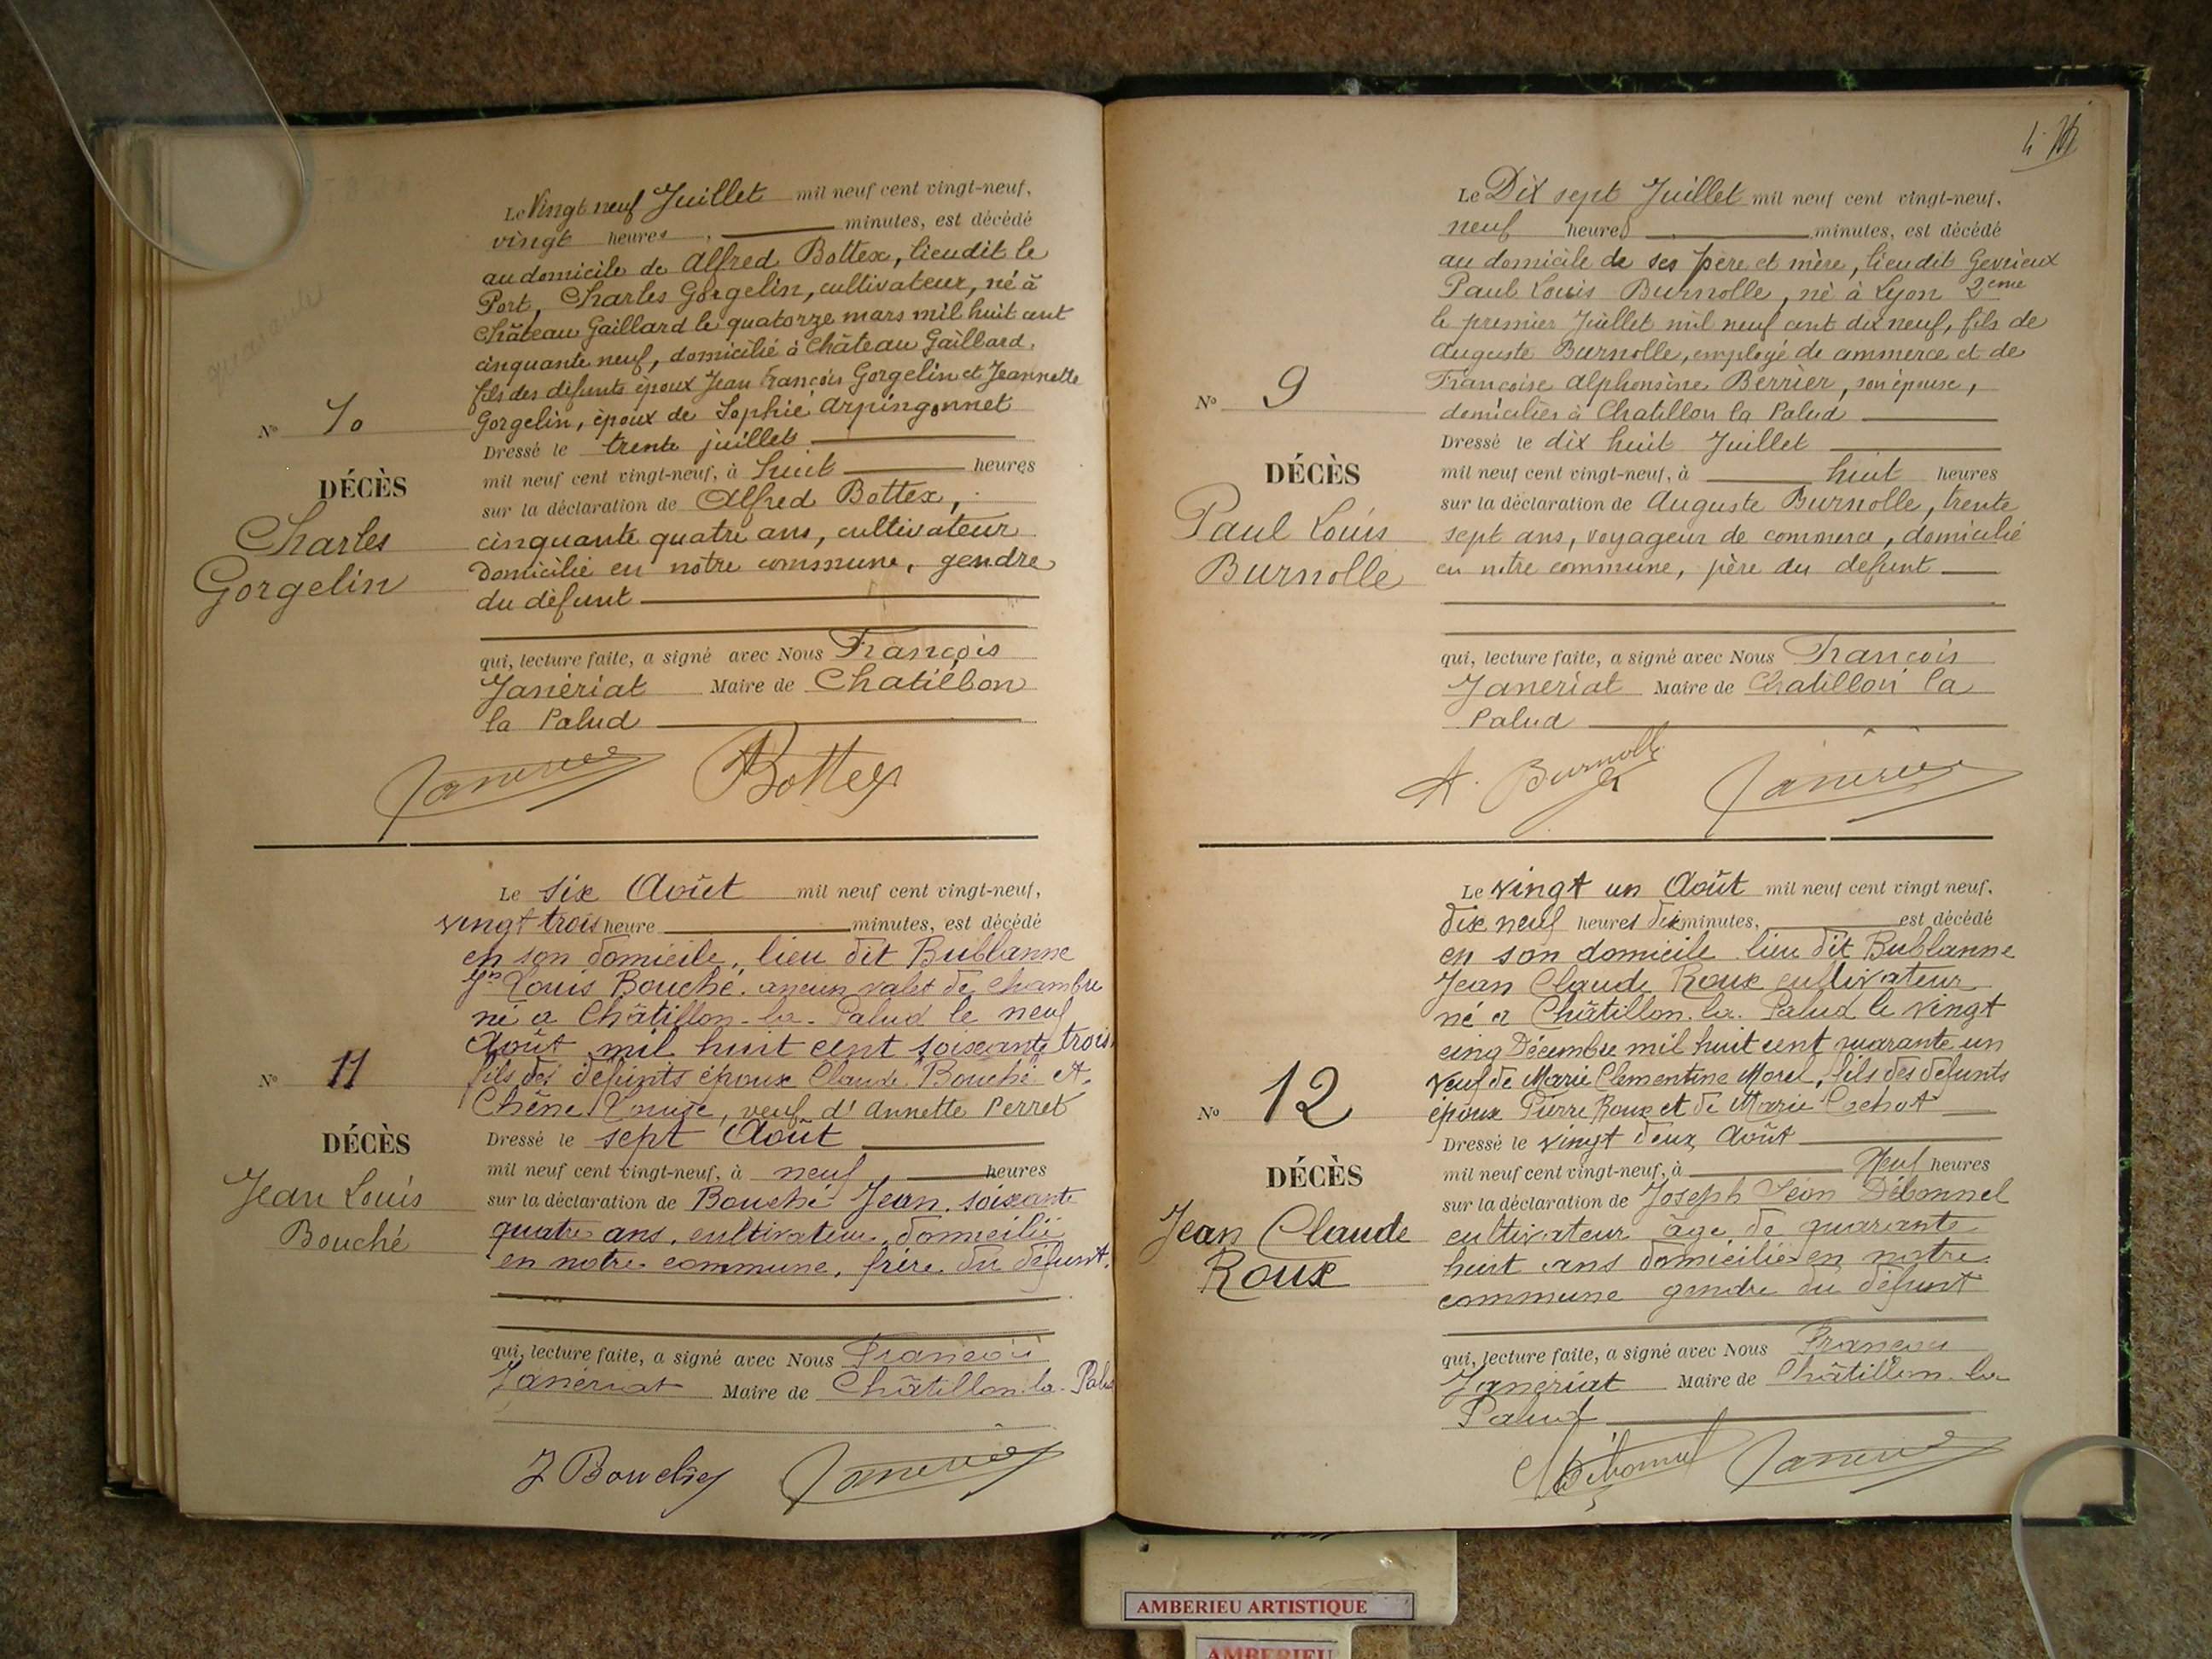 Le Vingt neuf Juillet mil neuf cent vingt-neuf,
vingt heures, minutes, est décédé
au domicile de Alfred Bottex, lieudit le
Port, Charles Gorgelin, cultivateur, né à
Château Gaillard le quatorze mars mil huit cent
cinquante neuf, domicilié à Château Gaillard,
fils des défunts époux Jean François Gorgelin et Jeannette
Gorgelin, époux de Sophie Arpingonnet
Dressé le trente juillet
mil neuf cent vingt-neuf, à huit heures
sur la déclaration de Alfred Bottex,
cinquante quatre ans, cultivateur
domicilié en notre commune, gendre
du défunt
qui, lecture faite, a signé avec Nous François
Janériat Maire de Chatillon
la Palud
N° 10
DÉCÈS
Charles
Gorgelin
Janériat ABottex
Le six Août mil neuf cent vingt-neuf,
vingt trois heure minutes, est décédé
en son domicile, lieu dit Bublanne
Jn Louis Bouché, ancien valet de chambre
né a Châtillon-la-Palud le neuf
Août mil huit cent soixante trois
fils des défunts époux Claude Bouché et
Chêne Louise, veuf d'Annette Perret
Dressé le sept Août
mil neuf cent vingt-neuf, à neuf heures
sur la déclaration de Bouché Jean, soixante
quatre ans, cultivateur, domicilié
en notre commune, frère du défunt.
qui, lecture faite, a signé avec Nous François
Janériat Maire de Châtillon-la-Palu
N° 11
DÉCÈS
Jean Louis
Bouché
J Bouchey Janériat
4
Le Dix sept Juillet mil neuf cent vingt-neuf,
neuf heures minutes, est décédé
au domicile de ses père et mère, lieudit Gevrieux
Paul Louis Burnolle, né à Lyon 2eme
le premier Juillet mil neuf cent dix neuf, fils de
Auguste Burnolle, employé de commerce et de
Françoise Alphonsine Berrier, son épouse,
domiciliés à Chatillon la Palud
Dressé le dix huit Juillet
mil neuf cent vingt-neuf, à huit heures
sur la déclaration de Auguste Burnolle, trente
sept ans, voyageur de commerce, domicilié
en notre commune, père du défunt
qui, lecture faite, a signé avec Nous François
Janeriat Maire de Chatillon la
Palud
N° 9
DÉCÈS
Paul Louis
Burnolle
A. Burnolle Janériat
Le vingt un Août mil neuf cent vingt neuf,
dix neuf heures dix minutes, est décédé
en son domicile lieu dit Bublanne
Jean Claude Roux cultivateur
né a Châtillon-la-Palud le vingt
cinq Décembre mil huit cent quarante un
veuf de Marie Clementine Morel, fils des défunts
époux Pierre Roux et de Marie Cochot
Dressé le vingt deux Août
mil neuf cent vingt-neuf, à Neuf heures
sur la déclaration de Joseph Léon Débonnel
cultivateur âgé de quarante
huit ans domicilié en notre
commune gendre du défunt
qui, lecture faite, a signé avec Nous François
Janeriat Maire de Châtillon-la
Palud
N° 12
DÉCÈS
Jean Claude
Roux
Débonnel Janériat
AMBERIEU ARTISTIQUE
AMBERIEU